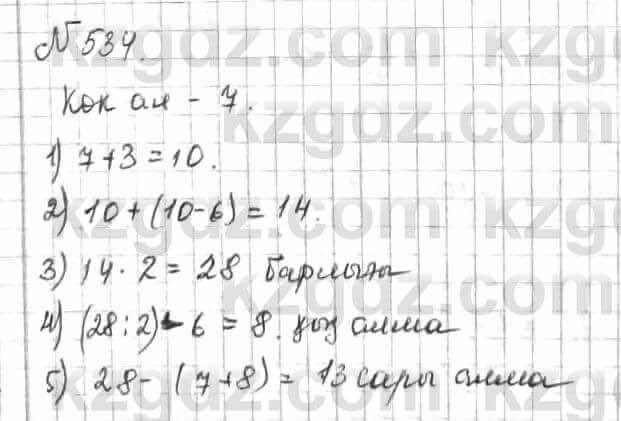 № 534.
Көк ал - 7.
1) 7+3=10.
2) 10+(10-6)=14.
3) 14·2=28 барлығы
4) (28:2)-6=8. қыз алма
5) 28-(7+8)=13 сары алма